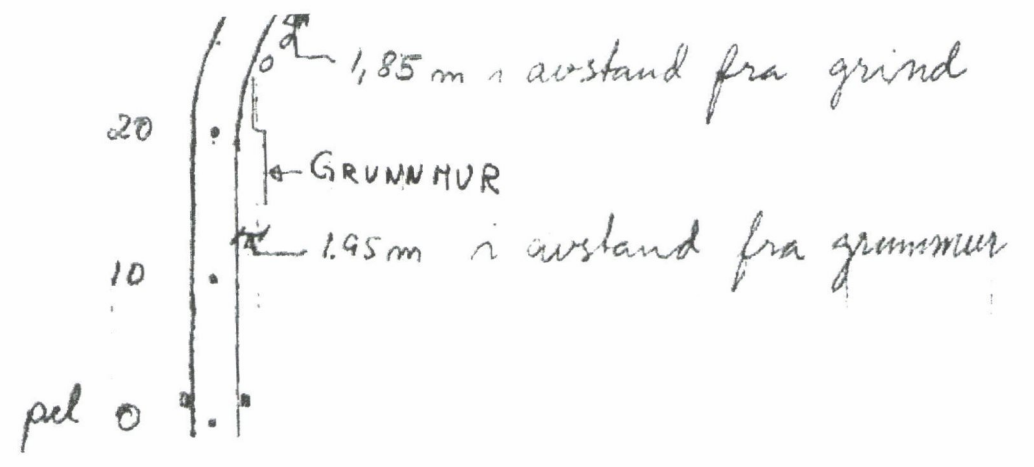 1,85 m i avstand fra grind
20
GRUNNMUR
1.95 m i avstand fra grunnmur
10
pel 0